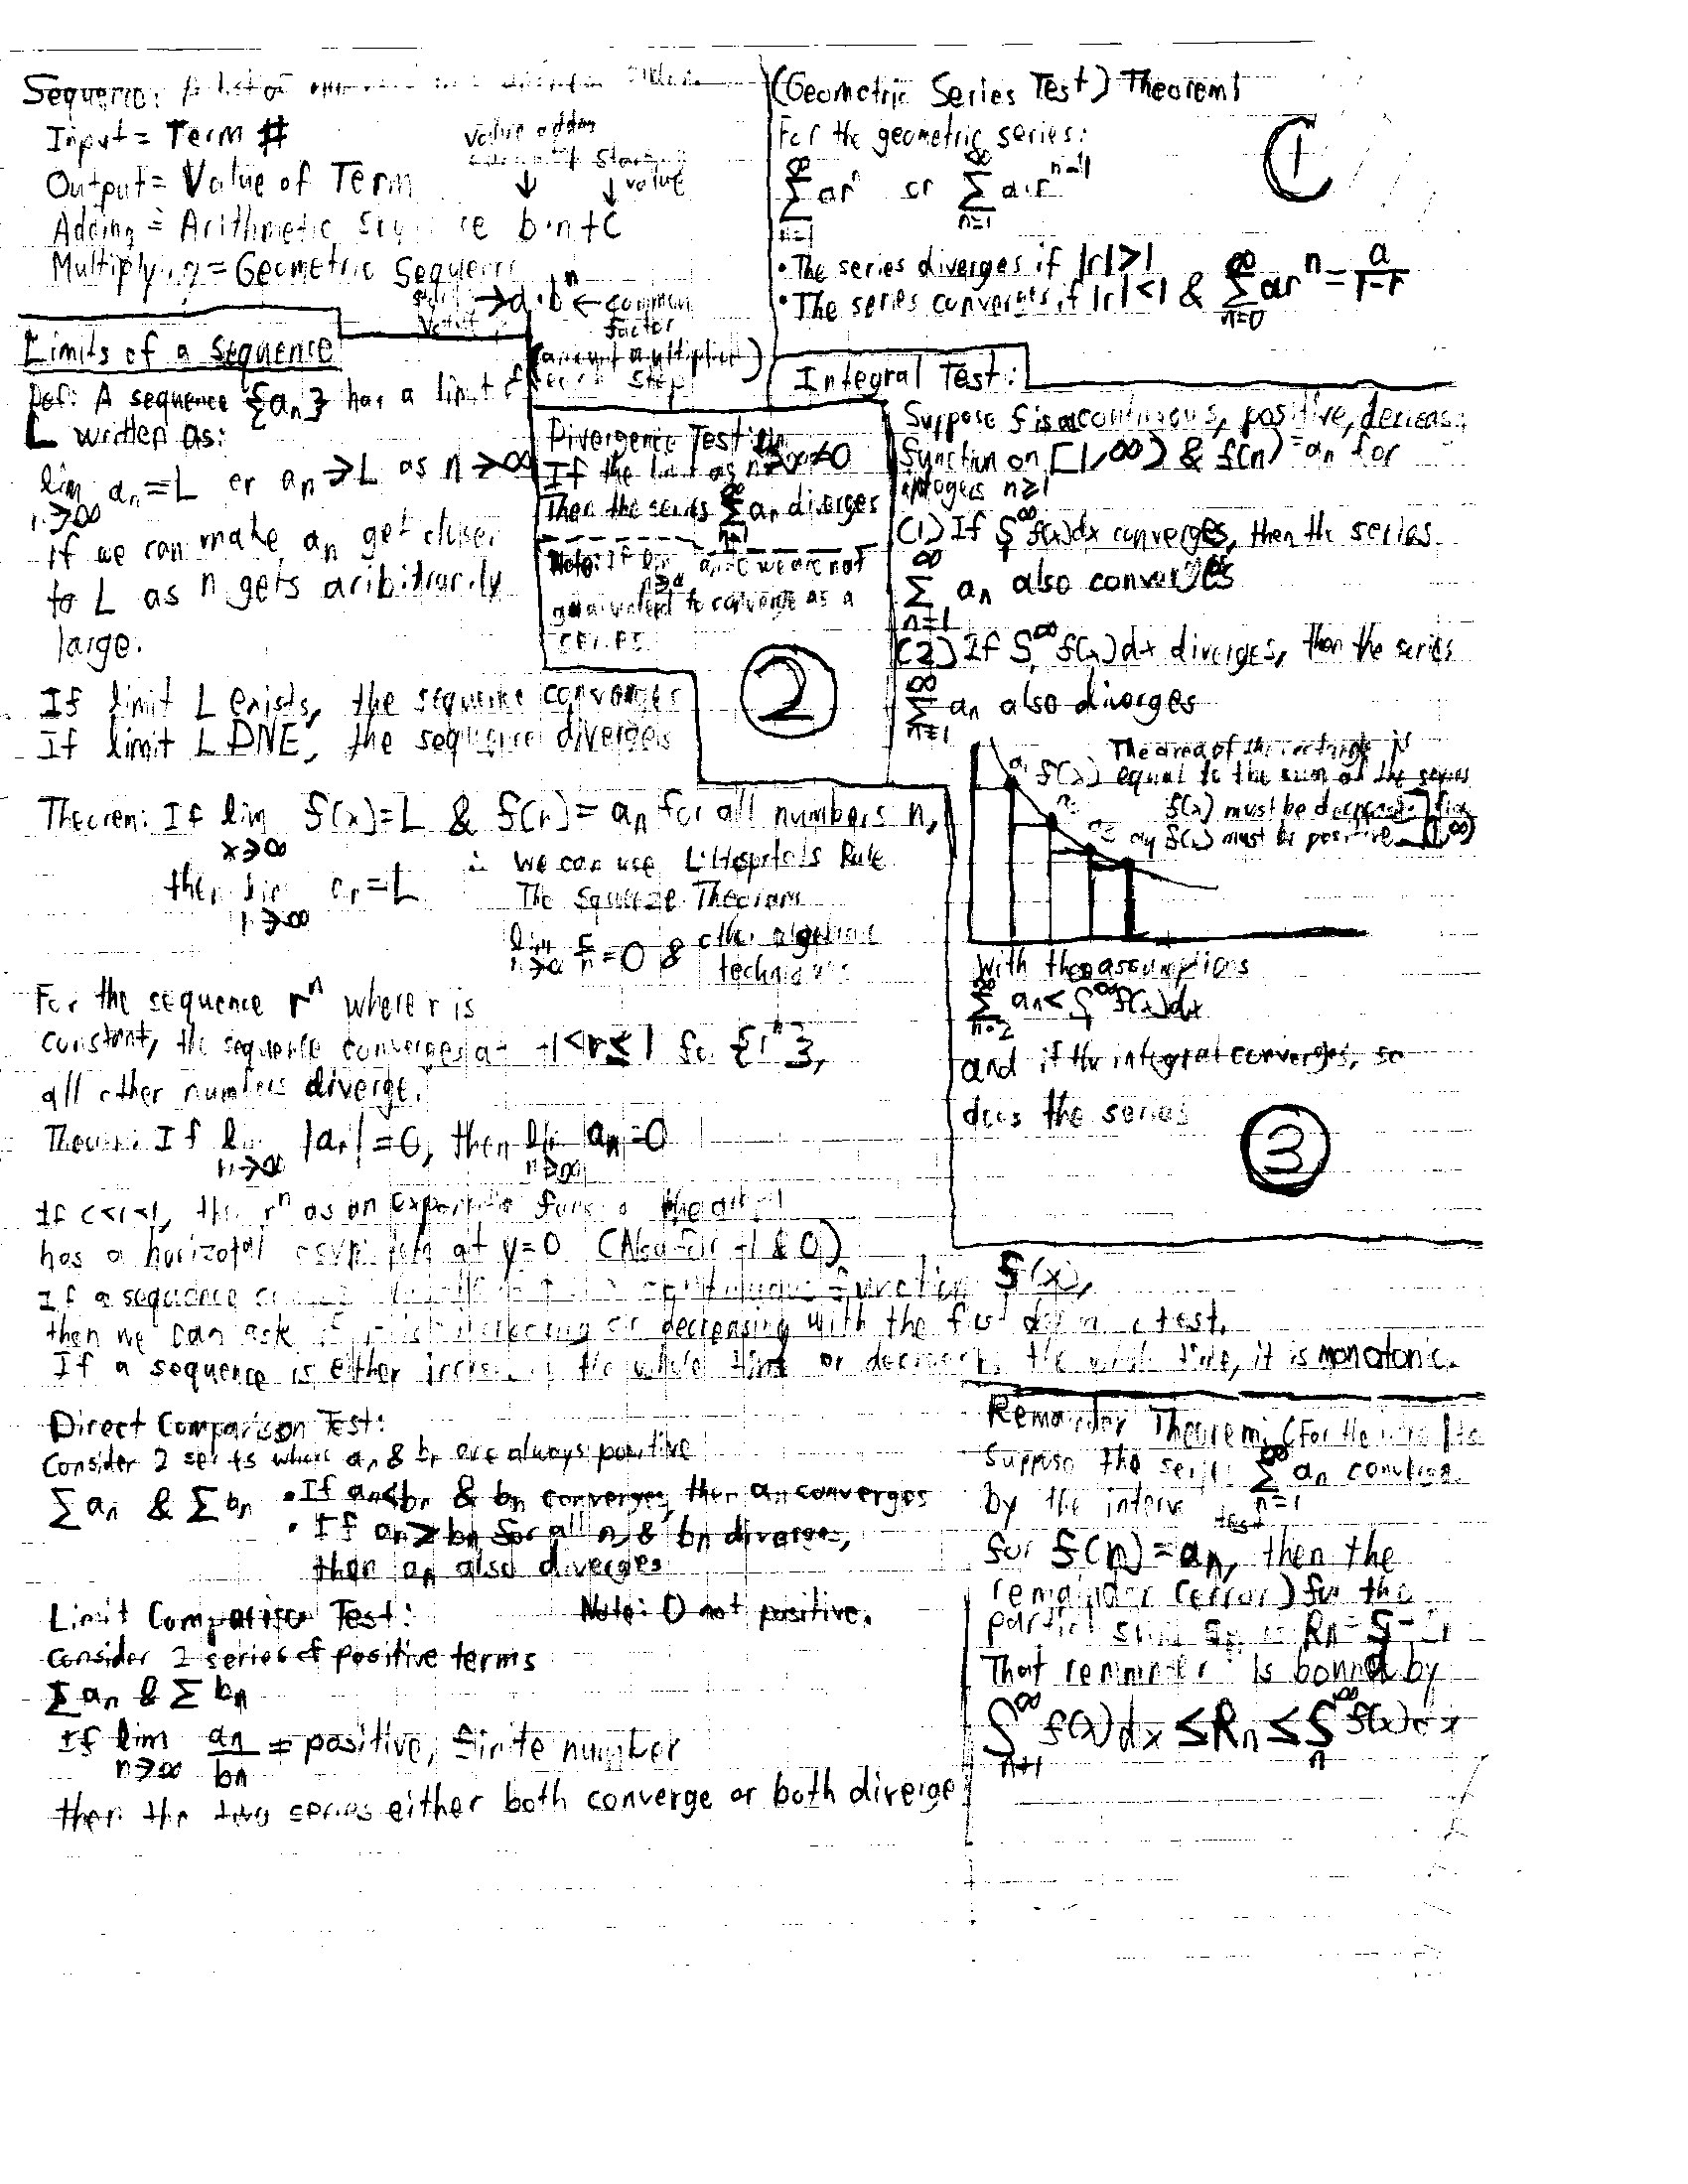 Sequence: A list of
Input = Term #
Output = Value of Term
value adding
starting
value
Adding = Arithmetic b·n+C
Multiplying = Geometric Sequence
→ a·b^n ← common
factor
(amount multiplied)
each step
(Geometric Series Test) Theorem
For the geometric series:
∑_{n=1}^∞ ar^n or ∑_{n=1}^∞ a·r^{n-1}
• The series diverges if |r|≥1
• The series converges if |r|<1 & ∑_{n=0}^∞ ar^n = a/(1-r)
①
Limits of a sequence
Def: A sequence {a_n} has a limit of
L written as:
lim_{n→∞} a_n = L or a_n → L as n→∞
if we can make a_n get closer
to L as n gets aribitrarily
large.
If limit L exists, the sequence converges
If limit L DNE, the sequence diverges
Divergence Test:
If the limit as n→∞ ≠0
Then the series ∑_{n=1}^∞ a_n diverges
Note: If lim_{n→∞} a_n=0 we are not
to converge as a
series
②
Integral Test:
Suppose f is a continuous, positive, decreas.
function on [1,∞) & f(n)=a_n for
integers n≥1
(1) If ∫_1^∞ f(x)dx converges, then the series
∑_{n=1}^∞ a_n also converges
(2) If ∫_1^∞ f(x)dx diverges, then the series
∑_{n=1}^∞ a_n also diverges
The area of the rectangle is
f(x) equal to the sum of the series
f(x) must be decreasing
f(x) must be positive [1,∞)
With these assumptions
∑_{n=2}^∞ a_n < ∫_1^∞ f(x)dx
and if the integral converges, so
does the series
③
Theorem: If lim_{x→∞} f(x)=L & f(n)=a_n for all numbers n,
then lim_{n→∞} a_n=L
∴ we can use L'Hopitals Rule
The Squeeze Theorem
lim_{n→∞} c/n=0 & other algebraic
techniques
For the sequence r^n where r is
constant, the sequence converges at -1<r≤1 for {r^n},
all other numbers diverge.
Theorem: If lim_{n→∞} |a_n|=0, then lim_{n→∞} a_n=0
If 0<r<1, then r^n as an
has a horizotal asymptote at y=0 (Also for -1 & 0)
If a sequence continuous function f(x),
then we can ask if increasing or decreasing with the first test.
If a sequence is either increasing the whole time or decreasing the whole time, it is monotonic.
Direct Comparison Test:
Consider 2 series where a_n & b_n are always positive
∑a_n & ∑b_n
• If a_n≤b_n & b_n converges, then a_n converges
• If a_n≥b_n for all n & b_n diverges,
then a_n also diverges
Note: 0 not positive.
Limit Comparison Test:
Consider 2 series of positive terms
∑a_n & ∑b_n
If lim_{n→∞} a_n/b_n = positive, finite number
then the two series either both converge or both diverge
Remainder Theorem: (For the
Suppose the series ∑_{n=1}^∞ a_n converge
by the test
for f(n)=a_n, then the
remainder (error) for the
partial sum R_n=S-
That remainder is bound by
∫_{n+1}^∞ f(x)dx ≤ R_n ≤ ∫_n^∞ f(x)dx